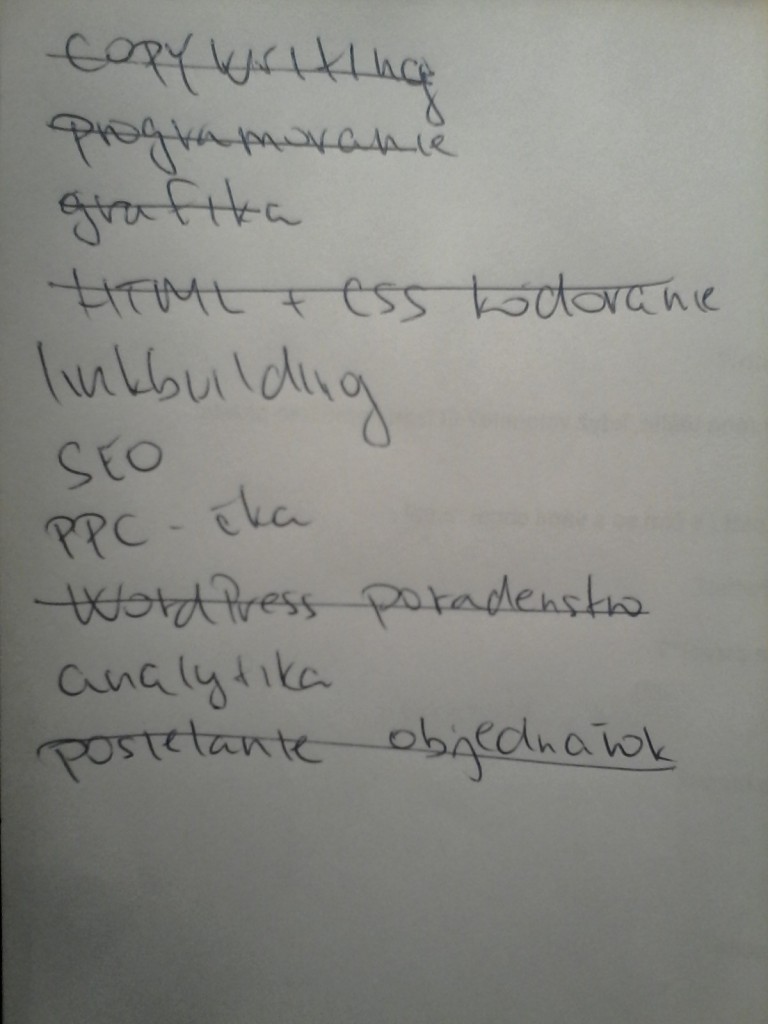 copywriting
programovanie
grafika
HTML + CSS kódovanie
linkbuilding
SEO
PPC - čka
WordPress poradenstvo
analytika
posielanie objednávok